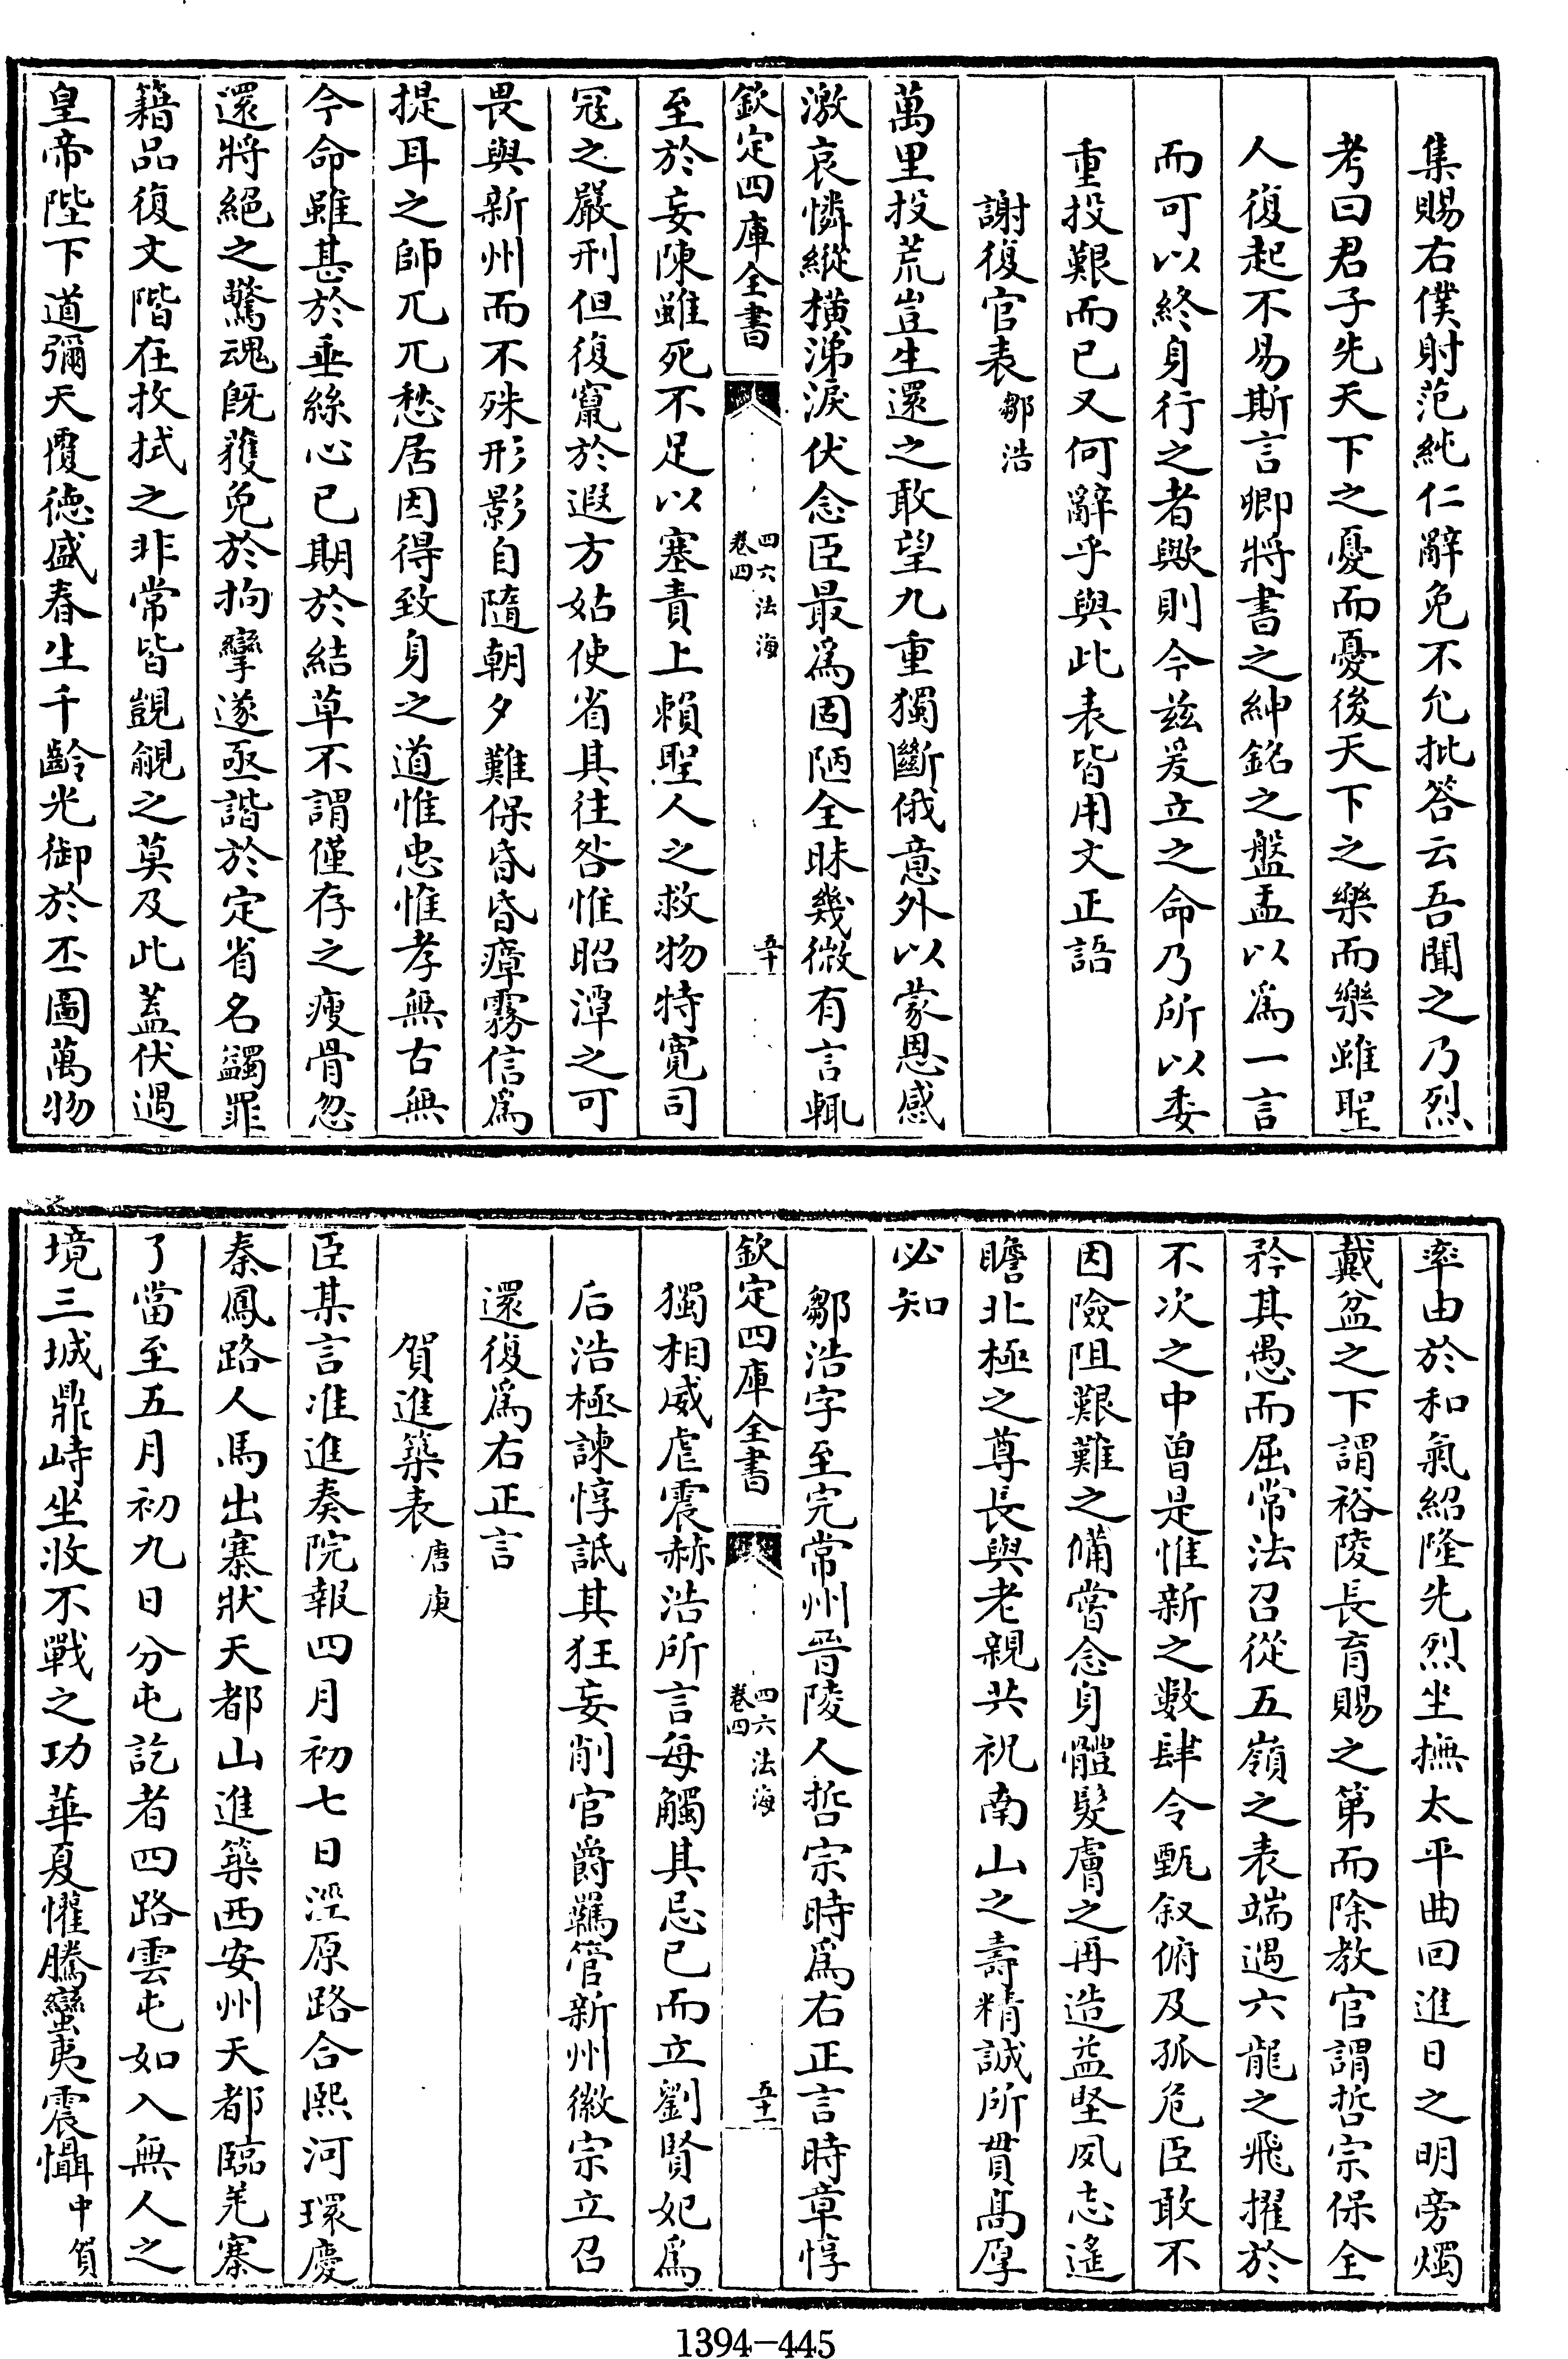 集賜右僕射范純仁辭免不允批答云吾聞之乃烈
考曰君子先天下之憂而憂後天下之樂而樂雖聖
人復起不易斯言卿將書之紳銘之盤盂以為一言
而可以終身行之者歟則今兹爰立之命乃所以委
重投艱而已又何辭乎與此表皆用文正語
謝復官表鄒浩
萬里投荒豈生還之敢望九重獨斷俄意外以蒙恩感
激哀憐縱横涕淚伏念臣最為固陋全昧幾微有言輒
欽定四庫全書
四六法海
卷四
五十
至於妄陳雖死不足以塞責上賴聖人之救物特寛司
冦之嚴刑但復竄於遐方姑使省其往咎惟昭潭之可
畏與新州而不殊形影自隨朝夕難保昏昏瘴霧信為
提耳之師兀兀愁居因得致身之道惟忠惟孝無古無
今命雖甚於垂絲心已期於結草不謂僅存之瘦骨忽
還將絕之驚魂既獲免於拘攣遂亟諧於定省名蠲罪
籍品復文階在抆拭之非常皆覬覦之莫及此蓋伏遇
皇帝陛下道彌天覆德盛春生千齡光御於丕圖萬物
率由於和氣紹隆先烈坐撫太平曲回進日之明旁燭
戴盆之下謂裕陵長育賜之第而除教官謂哲宗保全
矜其愚而屈常法召從五嶺之表端遇六龍之飛擢於
不次之中曽是惟新之數肆令甄叙俯及孤危臣敢不
因險阻艱難之備嘗念身體髮膚之再造益堅夙志遙
瞻北極之尊長與老親共祝南山之壽精誠所貫髙厚
必知
鄒浩字至完常州晉陵人哲宗時為右正言時章惇
欽定四庫全書
四六法海
卷四
五十一
獨相威虐震赫浩所言每觸其忌已而立劉賢妃為
后浩極諫惇詆其狂妄削官爵羈管新州徽宗立召
還復為右正言
賀進築表唐庚
臣某言准進奏院報四月初七日涇原路合熙河環慶
秦鳳路人馬出寨狀天都山進築西安州天都臨羌寨
了當至五月初九日分屯訖者四路雲屯如入無人之
境三城鼎峙坐收不戰之功華夏懽騰蠻夷震懾中賀
1394-445